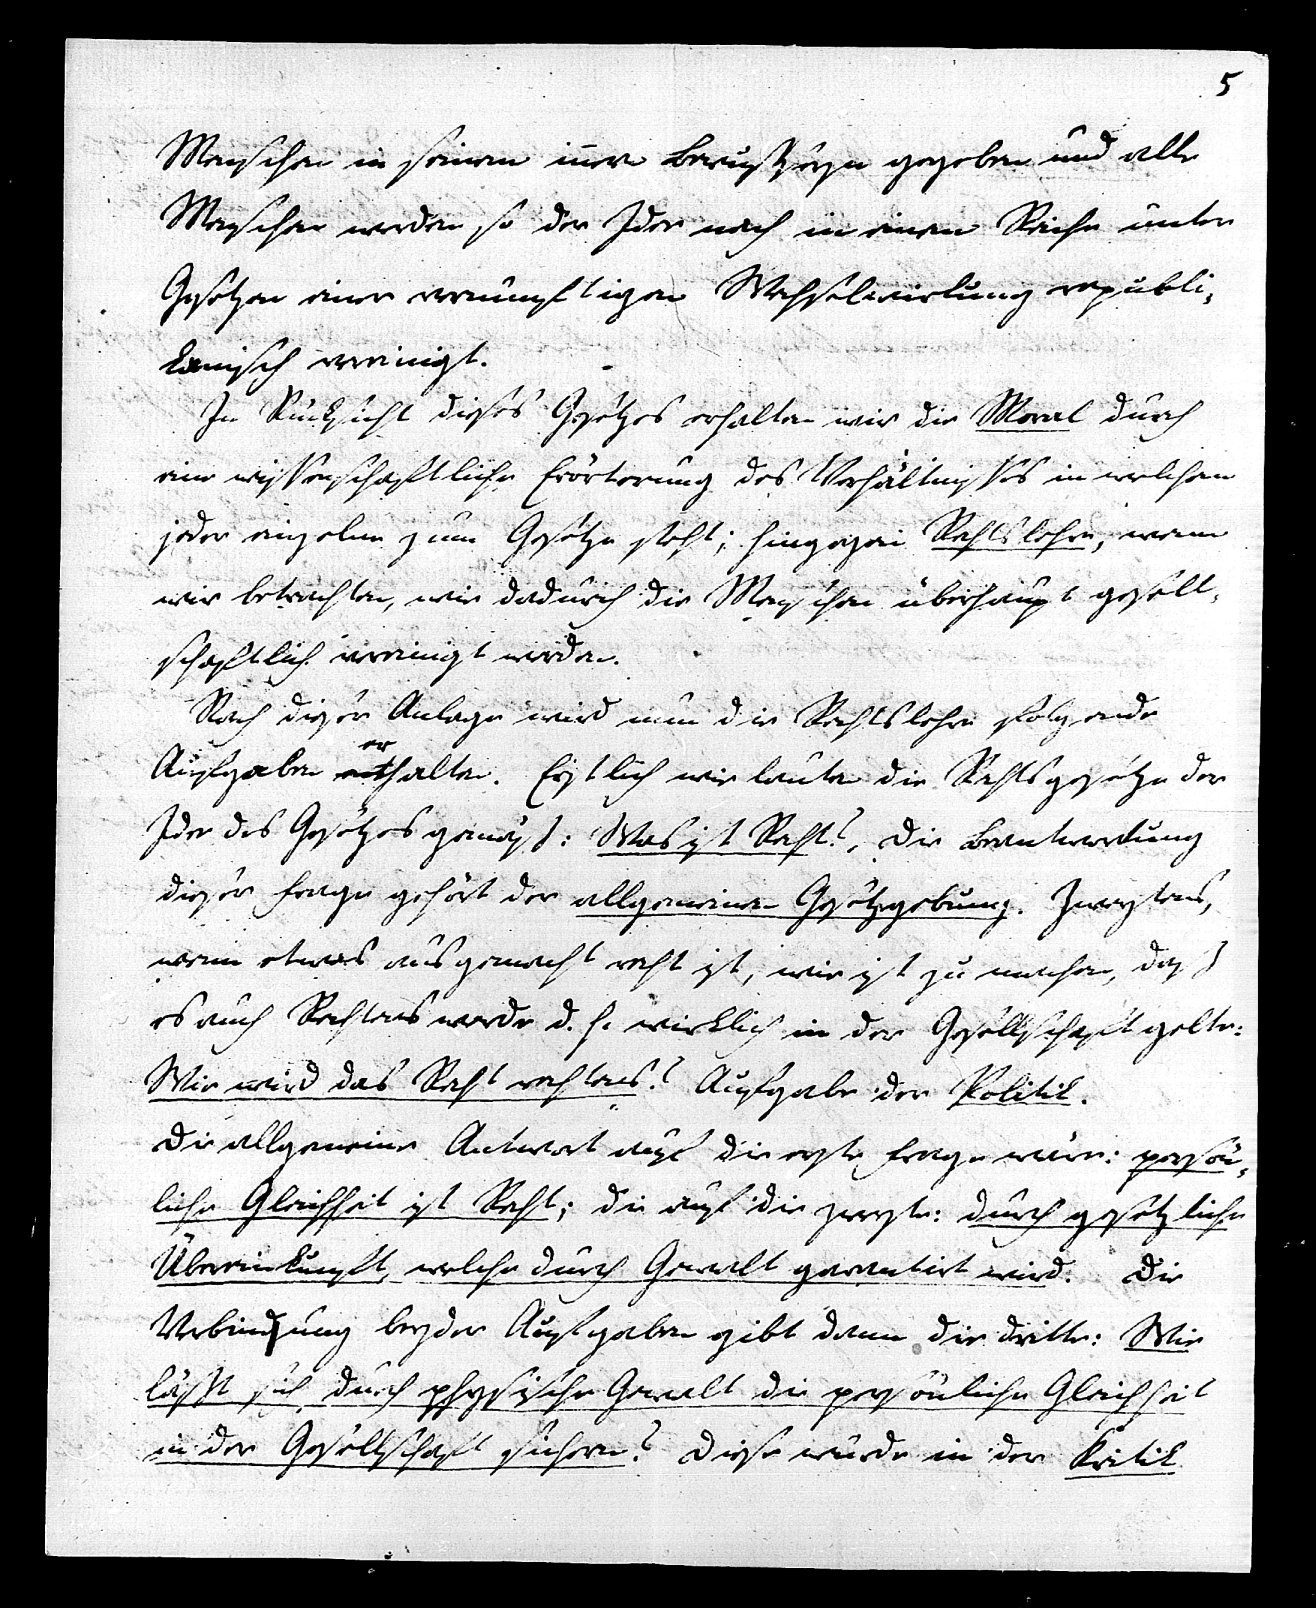 5
Menschen in seinem innern Bewußtseyn gegeben und alle
Menschen werden so der Idee nach in einem Reiche unter
Gesetzen einer vernünftigen Wechselwirkung republi-
kanisch vereinigt.
In Rücksicht dieses Gesetzes erhalten wir die Moral durch
eine wissenschaftliche Erörterung des Verhältnisses in welchem
jeder einzelne zum Gesetze steht; hingegen Rechtslehre, wenn
wir betrachten, wie dadurch die Menschen überhaupt gesell-
schaftlich vereinigt werden.
Nach dieser Anlage wird nun die Rechtslehre folgende
Aufgaben erhalten. Erstlich wie lauten die Rechtsgesetze der
Idee des Gesetzes gemäß: Was ist Recht?, die Beantwortung
dieser Frage gehört der allgemeinen Gesetzgebung. Zweytens,
wenn etwas ausgemacht recht ist, wie ist zu machen, daß
es auch Rechtens werde d. h. wirklich in der Gesellschaft gelte:
Wie wird das Recht rechtens? Aufgabe der Politik.
Die allgemeine Antwort auf die erste Frage wäre: persön-
liche Gleichheit ist Recht; die auf die zweyte: durch gesetzliche
Übereinkunft, welche durch Gewalt garantirt wird. Die
Verbindung beyder Aufgaben gibt dann die dritte: Wie
läßt sich durch physische Gewalt die persönliche Gleichheit
in der Gesellschaft sichern? Diese würde in der Kritik